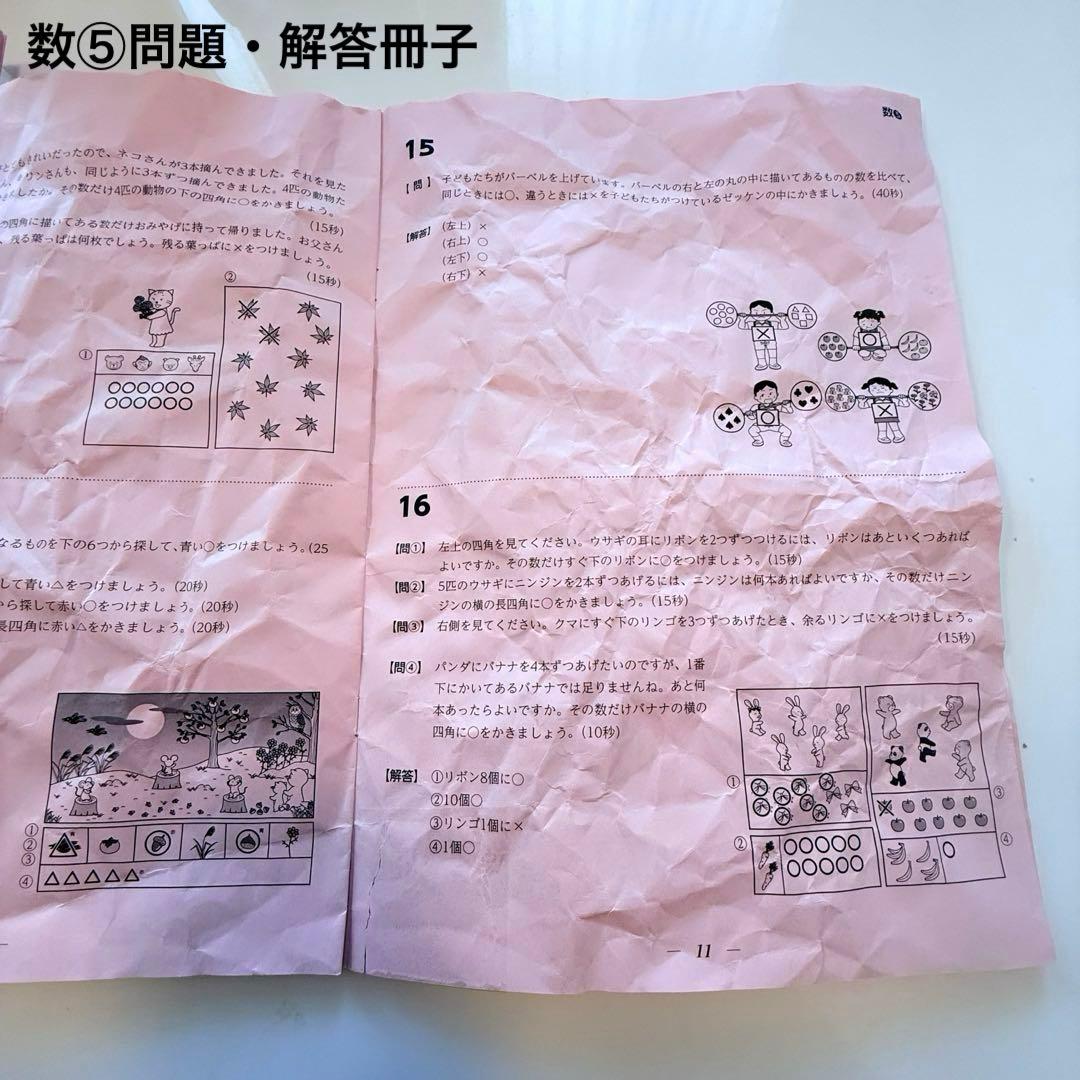 数⑤問題・解答冊子
きれいだったので、ネコさんが3本摘んできました。それを見た
リンさんも、同じように3本ずつ摘んできました。4匹の動物た
したか。その数だけ4匹の動物の下の四角に○をかきましょう。
(15秒)
の四角に描いてある数だけおみやげに持って帰りました。お父さん
、残る葉っぱは何枚でしょう。残る葉っぱに×をつけましょう。
(15秒)
②
①
なるものを下の6つから探して、青い○をつけましょう。(25
して青い△をつけましょう。(20秒)
から探して赤い○をつけましょう。(20秒)
長四角に赤い△をかきましょう。(20秒)
①
②
③
④
数⑤
15
【問】 子どもたちがバーベルを上げています。バーベルの右と左の丸の中に描いてあるものの数を比べて、
同じときには○、違うときには×を子どもたちがつけているゼッケンの中にかきましょう。(40秒)
【解答】 (左上) ×
(右上) ○
(左下) ○
(右下) ×
16
【問①】 左上の四角を見てください。ウサギの耳にリボンを2つずつつけるには、リボンはあといくつあれば
よいですか。その数だけすぐ下のリボンに○をつけましょう。(15秒)
【問②】 5匹のウサギにニンジンを2本ずつあげるには、ニンジンは何本あればよいですか、その数だけニン
ジンの横の長四角に○をかきましょう。(15秒)
【問③】 右側を見てください。クマにすぐ下のリンゴを3つずつあげたとき、余るリンゴに×をつけましょう。
(15秒)
【問④】 パンダにバナナを4本ずつあげたいのですが、1番
下にかいてあるバナナでは足りませんね。あと何
本あったらよいですか。その数だけバナナの横の
四角に○をかきましょう。(10秒)
【解答】 ①リボン8個に○
②10個○
③リンゴ1個に×
④1個○
①
②
③
④
— 11 —